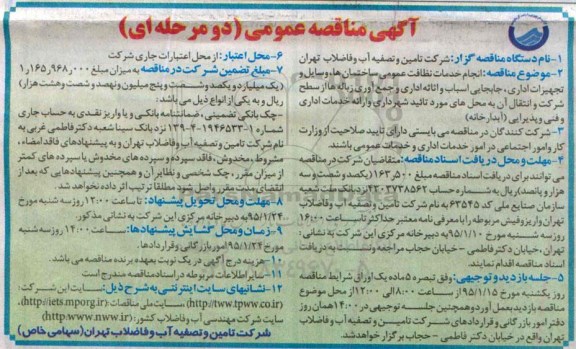 آگهی مناقصه عمومی (دو مرحله ای)
۱- نام دستگاه مناقصه گزار: شرکت تامین و تصفیه آب و فاضلاب تهران
۲- موضوع مناقصه: انجام خدمات نظافت عمومی ساختمان ها، وسایل و
تجهیزات اداری، جابجایی اسباب و اثاثه اداری و جمع آوری زباله ها از سطح
شرکت و انتقال آن به محل های مورد تائید شهرداری و ارائه خدمات اداری
و فنی و پذیرایی (آبدارخانه)
۳- شرکت کنندگان در مناقصه می بایستی دارای تأیید صلاحیت از وزارت
کار و امور اجتماعی در امور خدمات اداری و خدمات عمومی باشند.
۴- مهلت و محل دریافت اسناد مناقصه: متقاضیان شرکت در مناقصه
می توانند برای دریافت اسناد مناقصه مبلغ ۱۶۳٫۵۰۰ (یکصد و شصت و سه
هزار و پانصد) ریال به شماره حساب ۴۲۰۳۷۳۸۵۶۲ نزد بانک ملت شعبه
سازمان صنایع ملی کد ۶۳۵۴۵ به نام شرکت تامین و تصفیه آب و فاضلاب
تهران واریز و فیش مربوطه را با معرفی نامه معتبر حداکثر تا ساعت ۱۶:۰۰
روزسه شنبه مورخ ۹۵/۱/۱۰ به دبیرخانه مرکزی این شرکت به نشانی:
تهران، خیابان دکتر فاطمی - خیابان حجاب مراجعه و نسبت به دریافت
اسناد مناقصه اقدام نمایند.
۵- جلسه بازدید و توجیهی: وفق تبصره ۵ ماده یک اوراق شرایط مناقصه
روز یکشنبه مورخ ۹۵/۱/۱۵ از ساعت ۸:۰۰ الی ۱۲:۰۰ از محل موضوع
مناقصه بازدید بعمل آورد و همچنین جلسه توجیهی در ۱۴:۰۰ همان روز
دفتر امور بازرگانی و قراردادهای شرکت تامین و تصفیه آب و فاضلاب
تهران واقع در خیابان دکتر فاطمی - حجاب برگزار خواهد شد.
۶- محل اعتبار: از محل اعتبارات جاری شرکت
۷- مبلغ تضمین شرکت در مناقصه به میزان مبلغ ۱٫۱۶۵٫۹۶۸٫۰۰۰
(یک میلیارد و یکصد و شصت و پنج میلیون و نهصد و شصت و هشت هزار)
ریال و به یکی از انواع ذیل می باشد:
-چک بانکی تضمینی، ضمانتنامه بانکی و یا واریز نقدی به حساب جاری
شماره ۱-۱۹۴۶۵۳۳-۴-۱۳۹ نزد بانک سینا شعبه دکتر فاطمی غربی به
نام شرکت تامین و تصفیه آب و فاضلاب تهران و به پیشنهادهای فاقد امضاء،
مشروط، مخدوش، فاقد سپرده و سپرده های مخدوش یا سپرده های کمتر
از میزان مقرر، چک شخصی و نظایر آن و همچنین پیشنهادهایی که بعد از
انقضای مدت مقرر واصل شود مطلقا ترتیب اثر داده نخواهد شد.
۸- مهلت و محل تحویل پیشنهاد: تا ساعت ۱۲:۰۰ روز سه شنبه مورخ
۹۵/۱/۲۴ به دبیرخانه مرکزی این شرکت به نشانی مذکور.
۹- زمان و محل گشایش پیشنهادها: ساعت ۱۴:۰۰ روز سه شنبه
مورخ ۹۵/۱/۲۴ امور بازرگانی و قراردادها.
۱۰- هزینه درج آگهی در یک نوبت بعهده برنده مناقصه می باشد.
۱۱- سایر اطلاعات مربوطه در اسناد مناقصه مندرج است.
۱۲- نشانیهای سایت اینترنتی به شرح ذیل: سایت این شرکت:
(http://tww.tpww.co.ir) سایت ملی مناقصات: (http://iets.mporg.ir)،
سایت شرکت مهندسی آب و فاضلاب کشور: (http.www.nww.ir)
شرکت تامین و تصفیه آب و فاضلاب تهران (سهامی خاص)